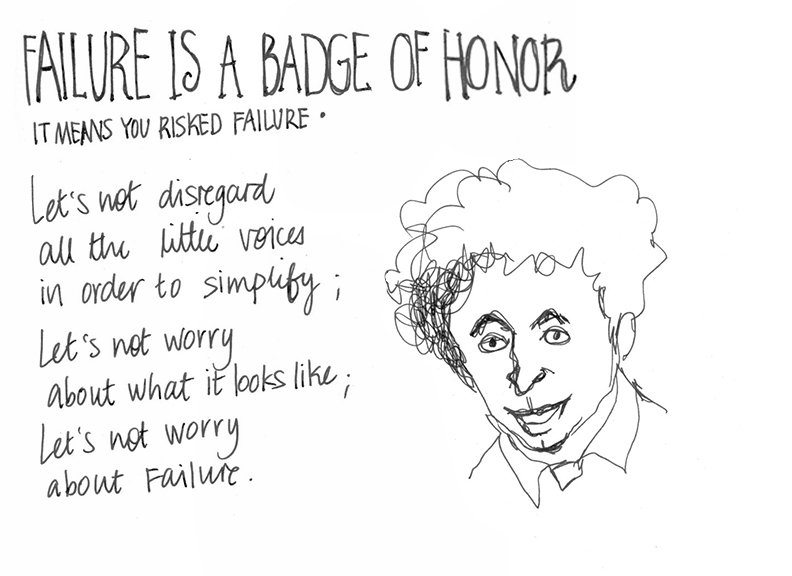 FAILURE IS A BADGE OF HONOR
IT MEANS YOU RISKED FAILURE .
Let's not disregard
all the little voices
in order to simplify ;
Let's not worry
about what it looks like ;
Let's not worry
about Failure .